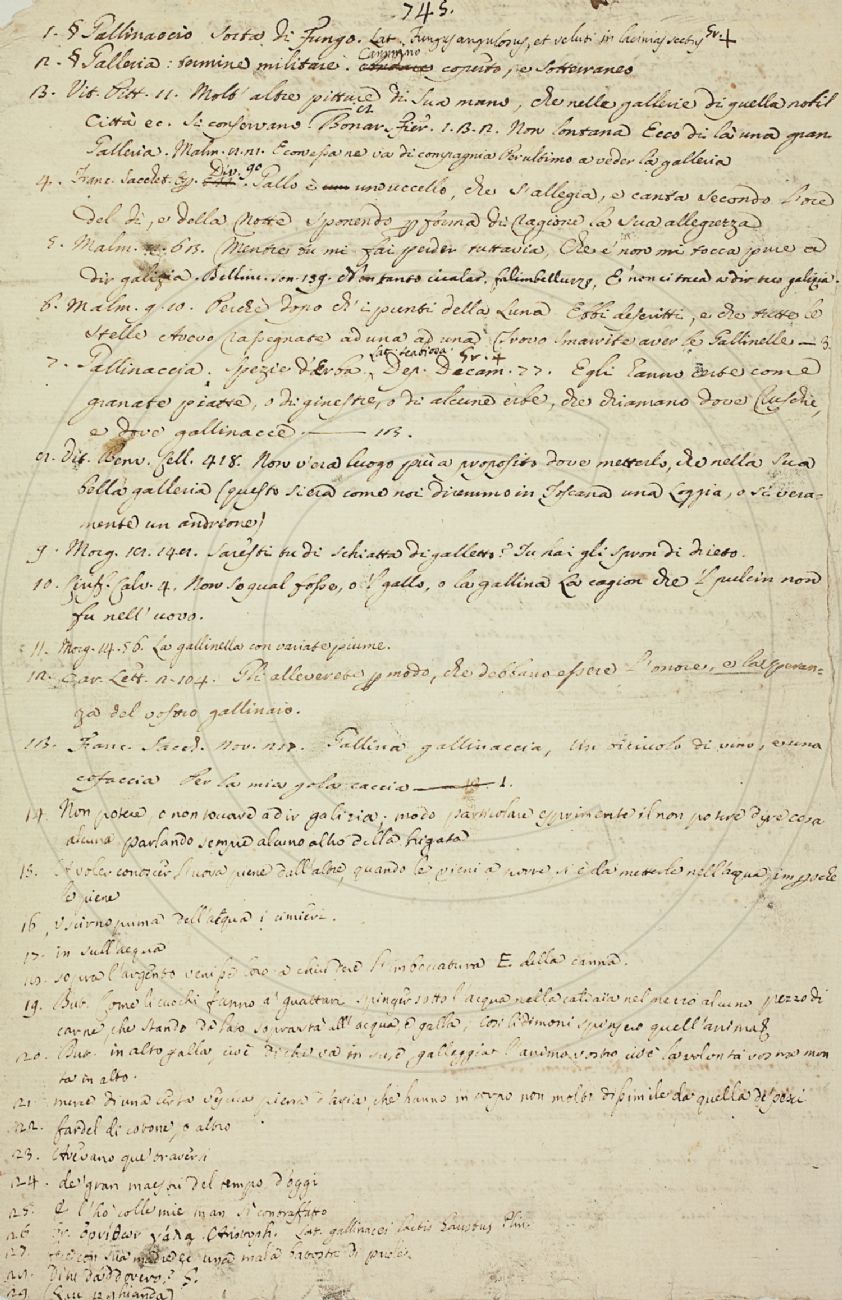 745.
1. § Gallinaccio Sorta di Fungo. Lat. Fungus angulosus, et veluti in lacinias sectus Gr. +
2. § Galleria: termine militare. Cammino coperto, e Sotterraneo
3. Vit. Pitt. 11. Molt' altre pitture di Sua mano, che nelle gallerie di quella nobil
Città ec. Si conservano. Bonar. Fier. 1. 3. 2. Non lontana Ecco di là una gran
Galleria. Malm. E con essa ne va di compagnia Per ultimo a veder la galleria
4. Franc. Sacchet. Op. Div. 90. Gallo è un uccello, che s'allegia, e canta secondo l'ore
del dì, e della Notte sponendo p forma di Ragione la Sua allegrezza
5. Malm. 2. 63. Mentre tu mi fai perder tuttavia, Che e' non mi tocca pure a
dir galizia. Bellinc. son. 139. Non tanto cicalar, falimbelluzzo, E' non ci toccà a dir teco galizia.
6. Malm. 9. 10. Perchè dopo ch' i punti della Luna Ebbi descritti, e che tutte le
Stelle Avevo Rassegnate ad una ad una Trovo Smarrite aver le Gallinelle — 3
7. Gallinaccia. Spezie d'Erba. Lat. Gr. + Dep. Decam. 77. Egli hanno erbe come
granate piatte, o di ginestre, o di alcune erbe, che chiamano dove Ruschi,
e dove gallinacce —— 113.
8. Dif. Benv. Cell. 418. Non v'era luogo più a proposito dove metterlo, che nella Sua
bella galleria (questo si era come noi diremmo in Toscana una Loggia, o sì vera=
mente un androne)
9. Morg. Saresti tu di schiatta di galletto? Tu hai gli spron di drieto.
10. Ciriff. Calv. 4. Non so qual fosse, o 'l gallo, o la gallina La cagion che 'l pulcin non
fu nell' uovo.
11. Morg. 14. 56. La gallinella con variate piume.
12. Car. Lett. 2. 104. Gli alleverete p modo, che debbano essere l'onore, e la speran=
za del vostro gallinaio.
13. Franc. Sacch. Nov. Gallina gallinaccia, Un orciuolo di vino, e una
cofaccia Per la mia gola caccia —— 1.
14. Non potere, o non toccare a dir galizia: modo particolare esprimente il non potere dire cosa
alcuna parlando sempre alcuno altro della brigata
15. A voler conoscer l'uova piene dall'altre, quando le vieni a porre si è da metterle nell'acqua, imp che
le piene
16. uscirno puma dell'acqua i cimieri.
17. in sull'acqua
18. sopra l'argento venisse loro a chiudere l'imboccatura E della canna.
19. But. Come li cuochi fanno a' guattari spinger sotto l'acqua nella caldaia nel mezzo alcuno pezzo di
carne, che stando da lato soprarstà all'acqua, e galla, così li dimoni spinsero quell'anima
20. But. in alto galla, cioè di che va in suso, galleggia l'animo vostro cioè la volontà vostra mon
ta in alto.
21. merce di una certa vescica piena d'aria, che hanno in corpo non molto dissimile da quella de' pesci
22. fardel di cotone, o altro
23. Avevano que' traversi
24. de' gran maestri del tempo d'oggi
25. E l'ho colle mie man sì contraffatto
26. Gr. Aristoph. Lat. gallinacei lactis haustus Plin.
27. una mala bacosta di
28. Di tu daddovero?
29.